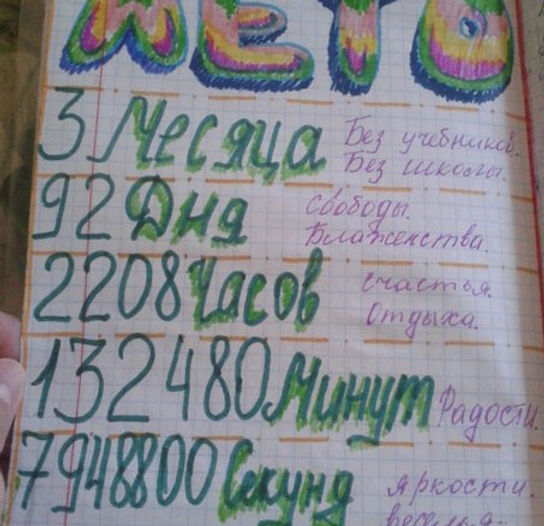 ЛЕТО
3 Месяца Без учебников.
Без школы.
92 Дня свободы.
Блаженства.
2208 Часов счастья.
Отдыха.
132480 Минут Радости.
7948800 Секунд яркости.
веселья.